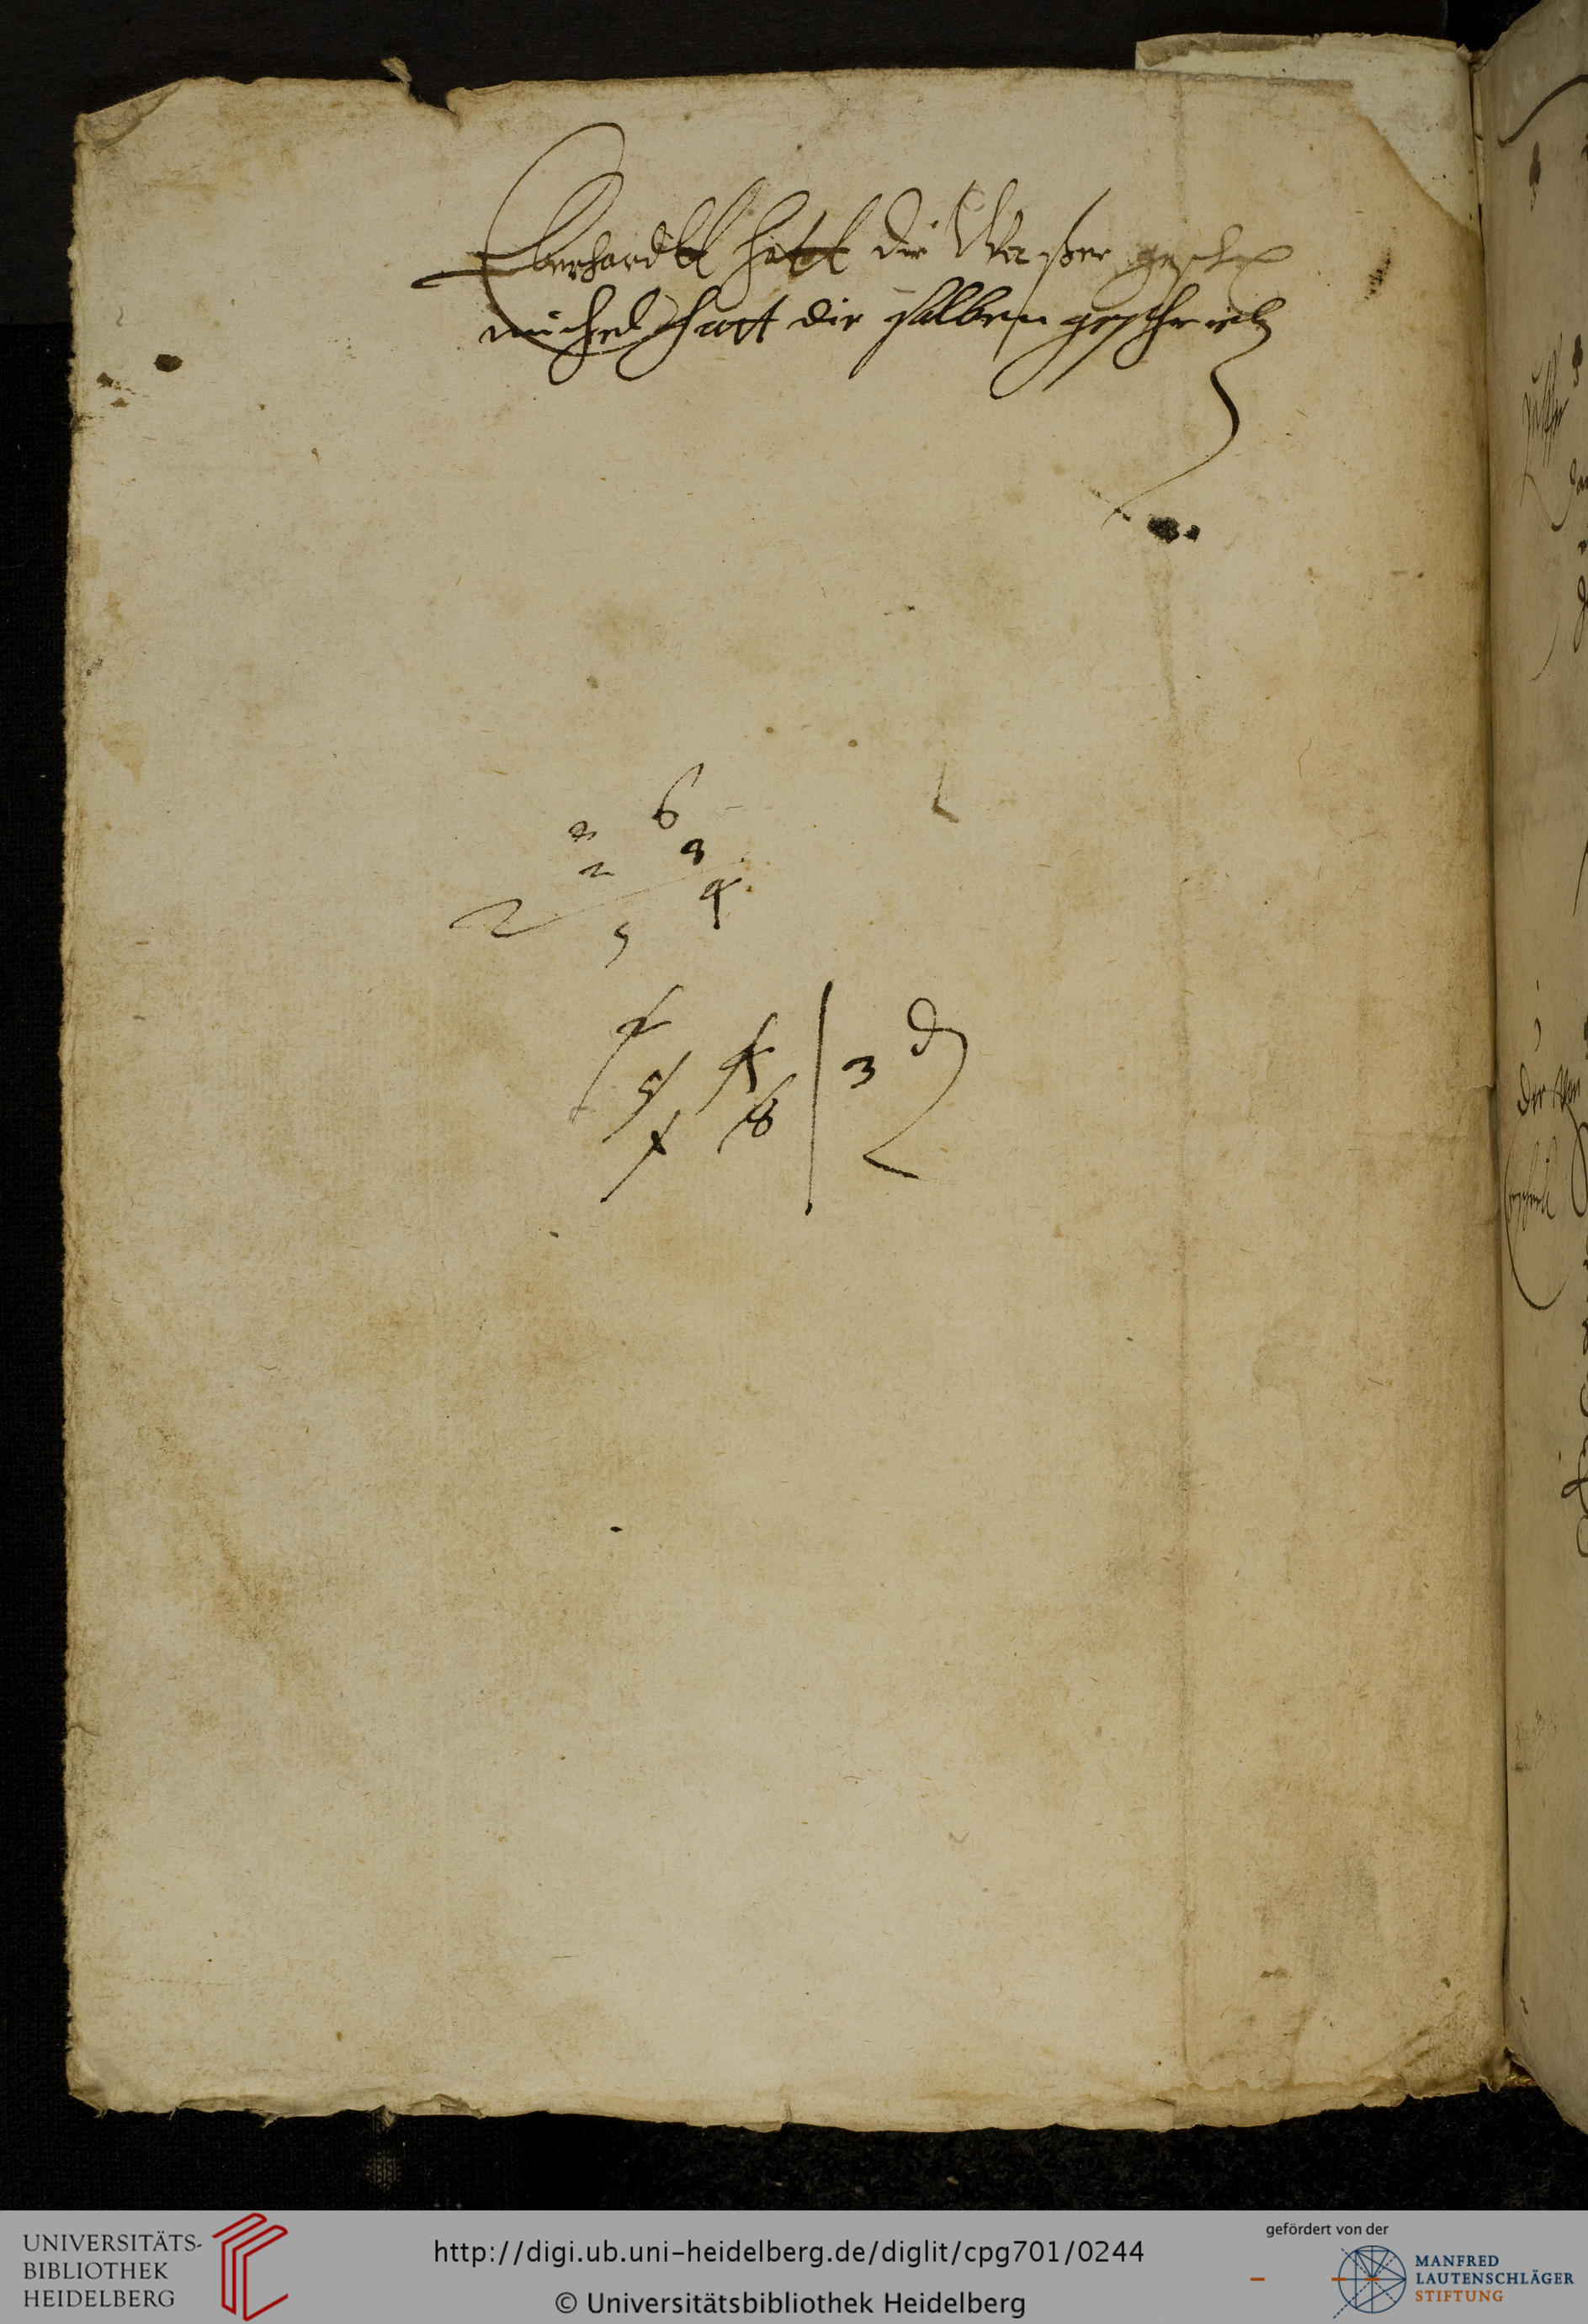 Eberhardtt hatt die Waßer gesch
michel hatt die salben geschrieb
6
2
2 8
2 4
5
2
5 4 3 d
1 8
Der
UNIVERSITÄTS-
BIBLIOTHEK
HEIDELBERG
http://digi.ub.uni-heidelberg.de/diglit/cpg701/0244
© Universitätsbibliothek Heidelberg
gefördert von der
MANFRED
LAUTENSCHLÄGER
STIFTUNG